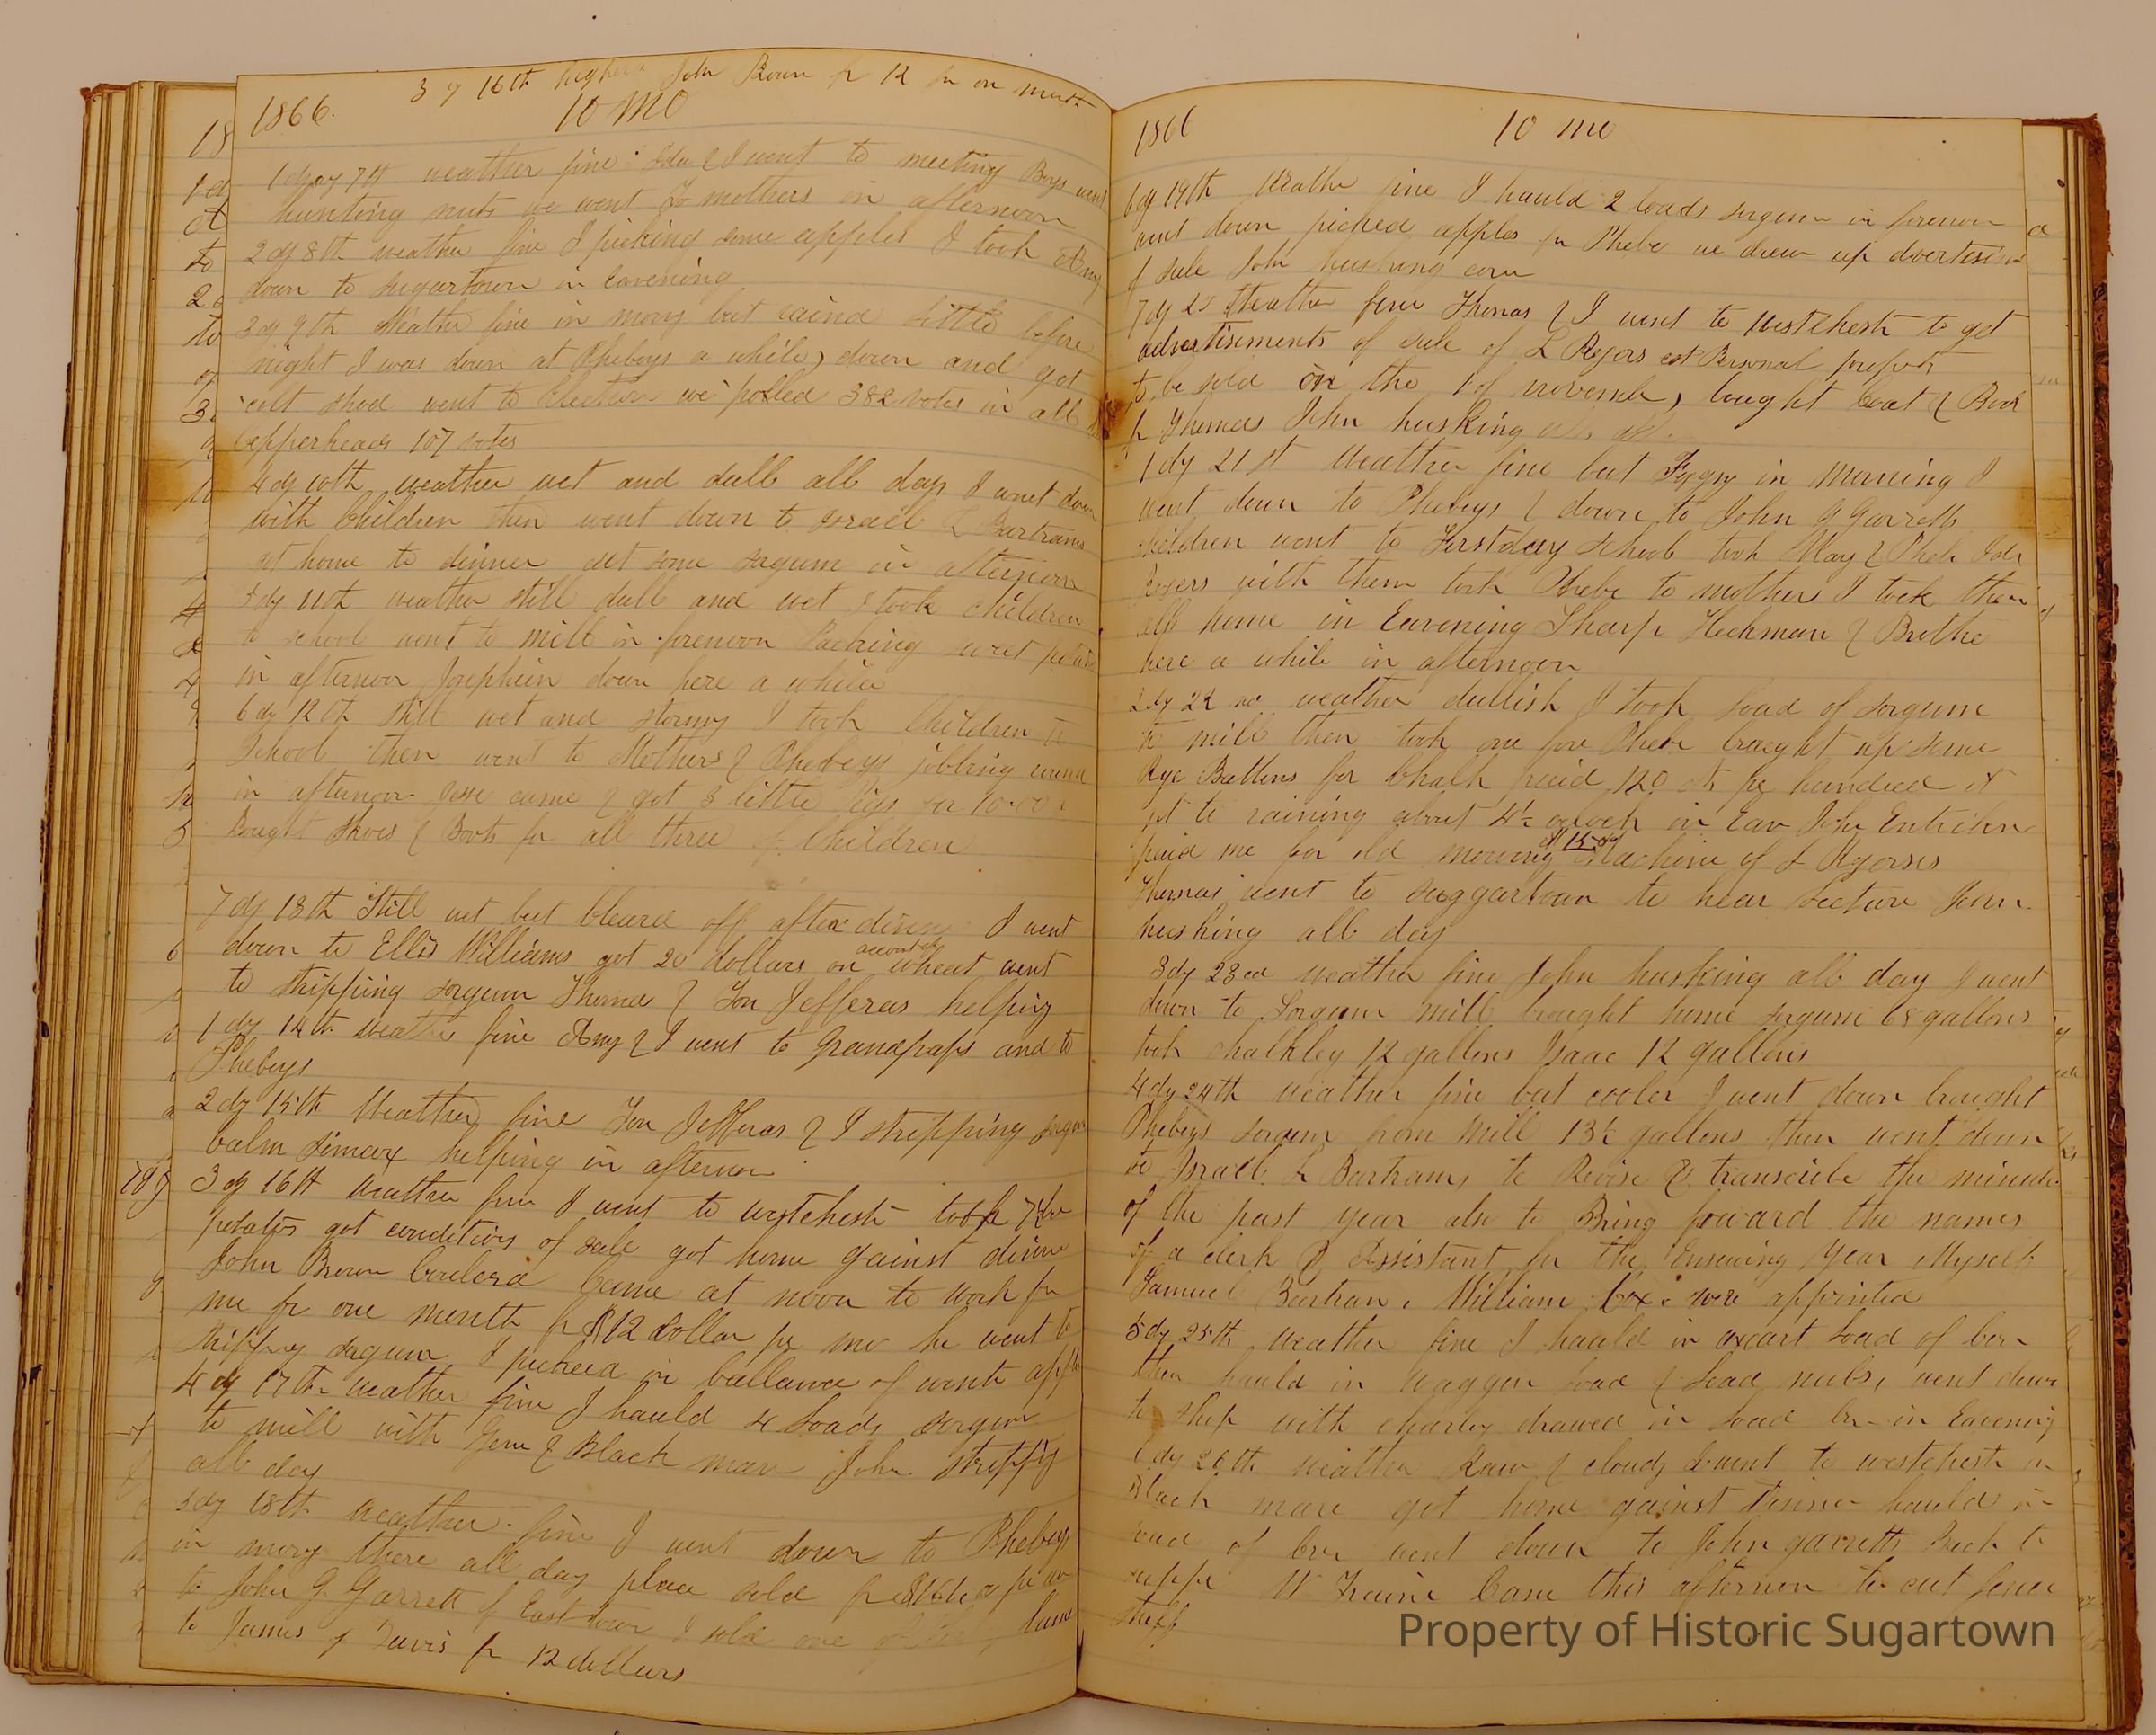 3 of 16th John Brown for 12 on month
1866. 10 mo
1 day 7th weather fine Ada & I went to meeting Boys went
hunting nuts we went to mothers in afternoon
2 dy 8th weather fine I picking some apples I took Amy
down to sugartown in Eavening
3 dy 9th Weather fine in morng but raind little before
night I was down at Phebeys a while, down and got
colt shod went to Election we polled 382 votes in all
Copperheads 107 votes
4 dy 10th weather wet and dull all day I went down
with Children then went down to Israel L Bartrams
got home to dinner set some sorgum in afternoon
5 dy 11th weather still dull and wet I took children
to school went to mill in forenoon sweet
in afternoon Josephein down here a while
6 dy 12th still wet and stormy I took Children to
School then went to Mothers & Phebeys jobbing round
in afternoon Jesse came & got 3 little pigs for 10.00
Bought shoes & Boots for all three of Children
7 dy 13th Still wet but Cleard off after dinn I went
down to Ellis Williams got 20 dollars on account of wheat went
to stripping sorgum Thomas & Jon Jefferas helping
1 dy 14th Weather fine Amy & I went to Grandpaps and to
Phebeys
2 dy 15th Weather fine Jon Jefferas & I stripping sorgum
helping in afternoon
3 dy 16th weather fine I went to westchester took 7
potatos got conditions of sale got home against dinne
John Brown Coulerd Came at noon to work for
me for one month for $12 dollar per mo he went to
stripping sorgum I picked in ballance of winte apples
4 dy 17th weather fine I hauld 4 loads sorgum
to mill with Gem & Black mare John stripping
all day
5 dy 18th weather fine I went down to Phebeys
in morng there all day place sold for
to John G. Garrett of Easttown I sold one of lame
to James Davis for 12 dollars
1866 10 mo
6 dy 19th Weathe fine I hauld 2 loads sorgum in forenoon
went down picked apples for Phebe we drew up advertisem
of sale John husking corn
7 dy 20 Weather fine Thomas & I went to Westchester to get
advertisements of sale of L Rogers est Personal property
to be sold on the 1 of november, bought Coat & Book
for Thomas John husking all
1 dy 21st Weather fine but Foggy in Morning I
went down to Phebeys & down to John G Garretts
children went to Firstday School took Mary & Pheb
Rogers with them took Phebe to mother I took them
all home in Eavening Sharp Heckman & Brothe
here a while in afternoon
2 dy 22nd weather dullish I took load of sorgum
to mill then took one for Phebe brought up some
Rye Battens for Chalk paid 120 cts per hundred it
got to raining about 4½ oclock in Eav John Entriken
paid me for old mowing $15.00 Machine of L Rogerses
Thomas went to suggartown to hear Lecture John
husking all day
3 dy 23rd weather fine John husking all day I went
down to Sorgum mill brought home sorgum 68 gallons
took chalkley 12 gallons Isaac 12 gallons
4 dy 24th weather fine but cooler I went down brought
Phebeys sorgum from Mill 13½ gallons then went down
to Israel L Bartrams to Revise & transcribe the minute
of the past year also to Bring forward the names
of a clerk & Assistant for the Ensuing Year Myself
Samuel Bartram & William Cox were appointed
5 dy 25th weather fine I hauld in oxcart load of Corn
then hauld in waggon load & load nubs, went down
to shop with charley drawed in load in Eavening
6 dy 26th weather Raw & cloudy I went to westchester in
Black mare got home against Dinner hauld in
load of Corn went down to John garretts Back to
suppe W Traine Came this afternoon to cut fence
stuff
Property of Historic Sugartown